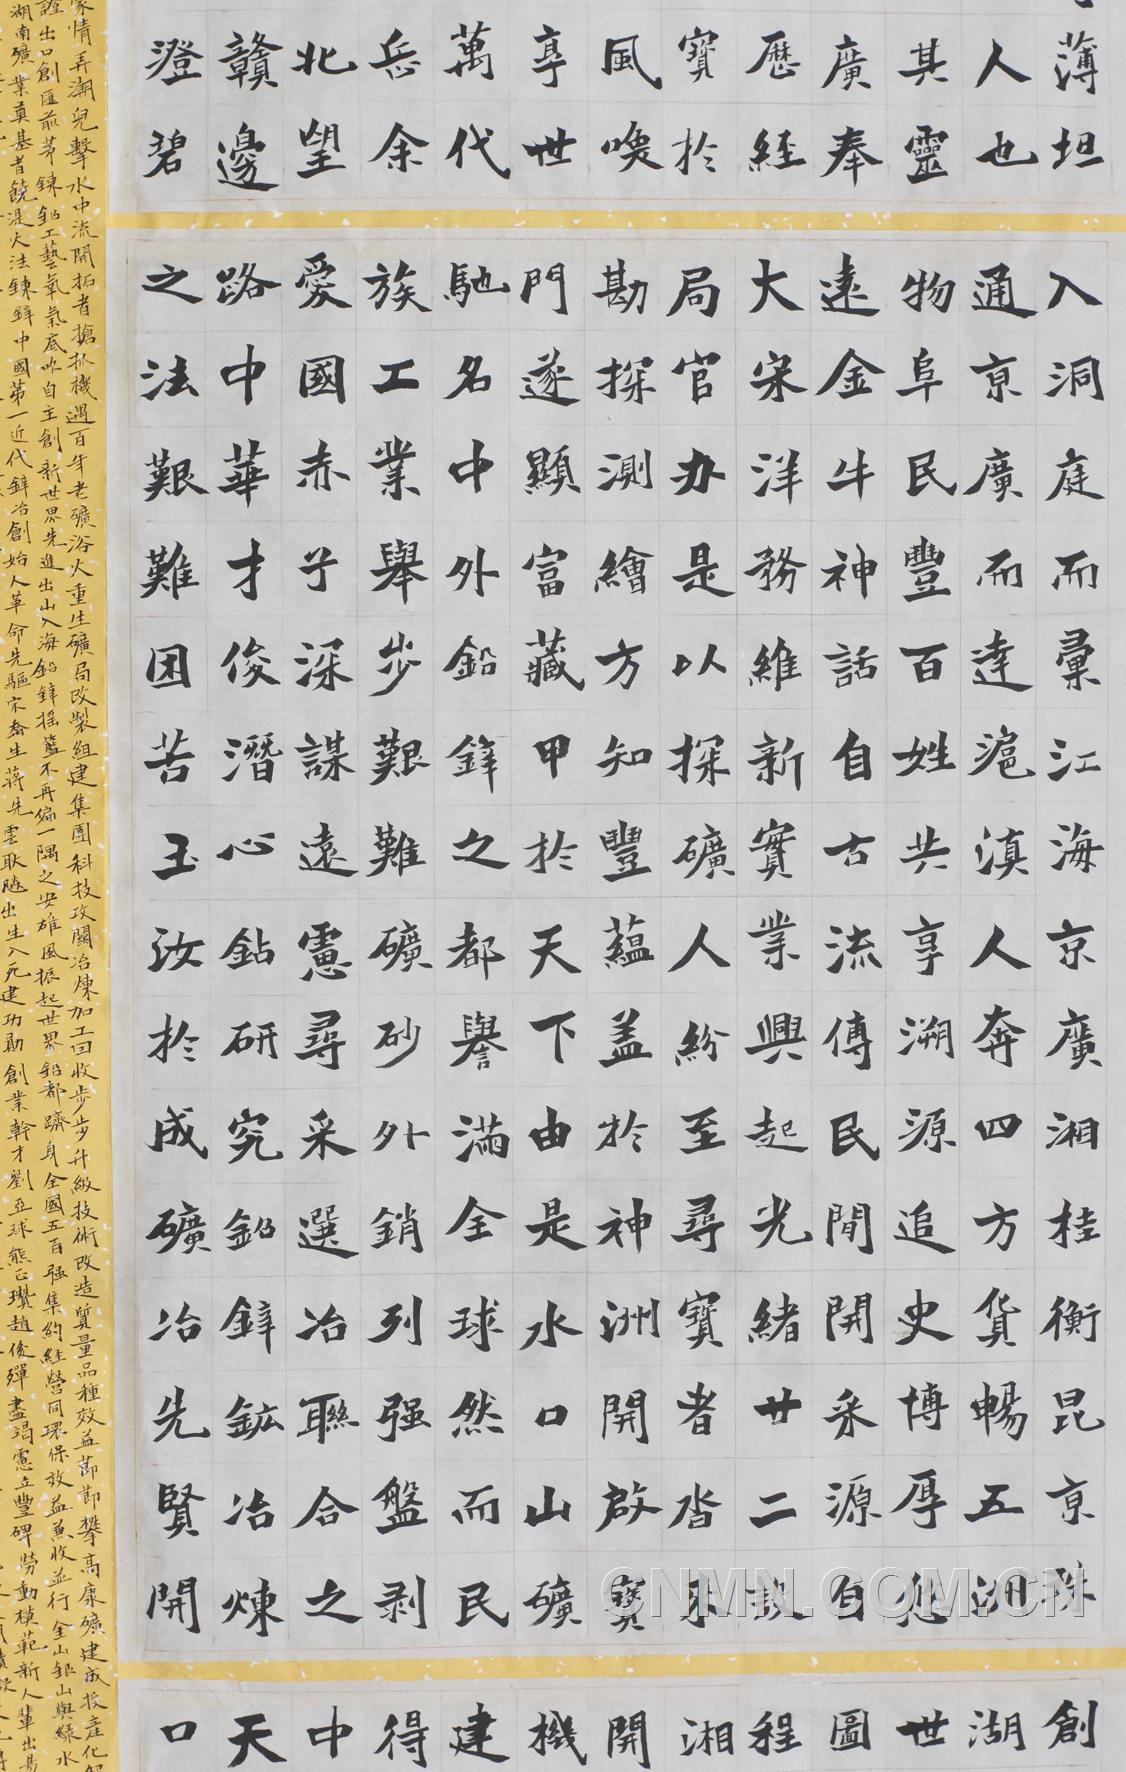 薄坦
人也
其靈
廣奉
歷經
寶於
風喚
享世
萬代
岳余
北望
贛邊
澄碧
入洞庭而彙江海京廣湘桂衡昆京珠
通京廣而達滬滇人奔四方貨暢五湖
物阜民豐百姓共享溯源追史博厚悠
遠金牛神話自古流傳民間開采源自
大宋洋務維新實業興起光緒廿二設
局官办是以探礦人紛至尋寶者沓來
勘探測繪方知豐蘊蓋於神洲開啟寶
門遂顯富藏甲於天下由是水口山礦
馳名中外鉛鋅之都譽滿全球然而民
族工業舉步艱難礦砂外銷列强盤剥
愛國赤子深謀遠慮尋采選冶聯合之
路中華才俊潛心鉆研究鉛鋅鉱冶煉
之法艱難困苦玉汝於成礦冶先賢開
創
湖
世
圖
程
湘
開
機
建
得
中
天
口
情弄潮兒擊水中流開拓者搶抓機遇百年老礦浴火重生礦局改製組建集團科技攻關冶煉加工回收步步升級技術改造質量品種效益節節攀高康礦建成投產化
證出口創匯前茅鍊鉛工藝氧氣底吹自主創新世界先進出山入海鉛鋅搖籃不再偏一隅之安雄風振起世界鉛都躋身全國五百强集約經營同環保效益兼收並行金山銀山與綠水
湖南礦業奠基者饒湜火法鍊鋅中國第一近代鋅冶創始人革命先驅宋喬生蔣先雲耿飈出生入死建功勛創業幹才劉亞球熊正瓚趙俊殫盡竭慮立豐碑勞動模範新人輩出
CNMN.COM.CN